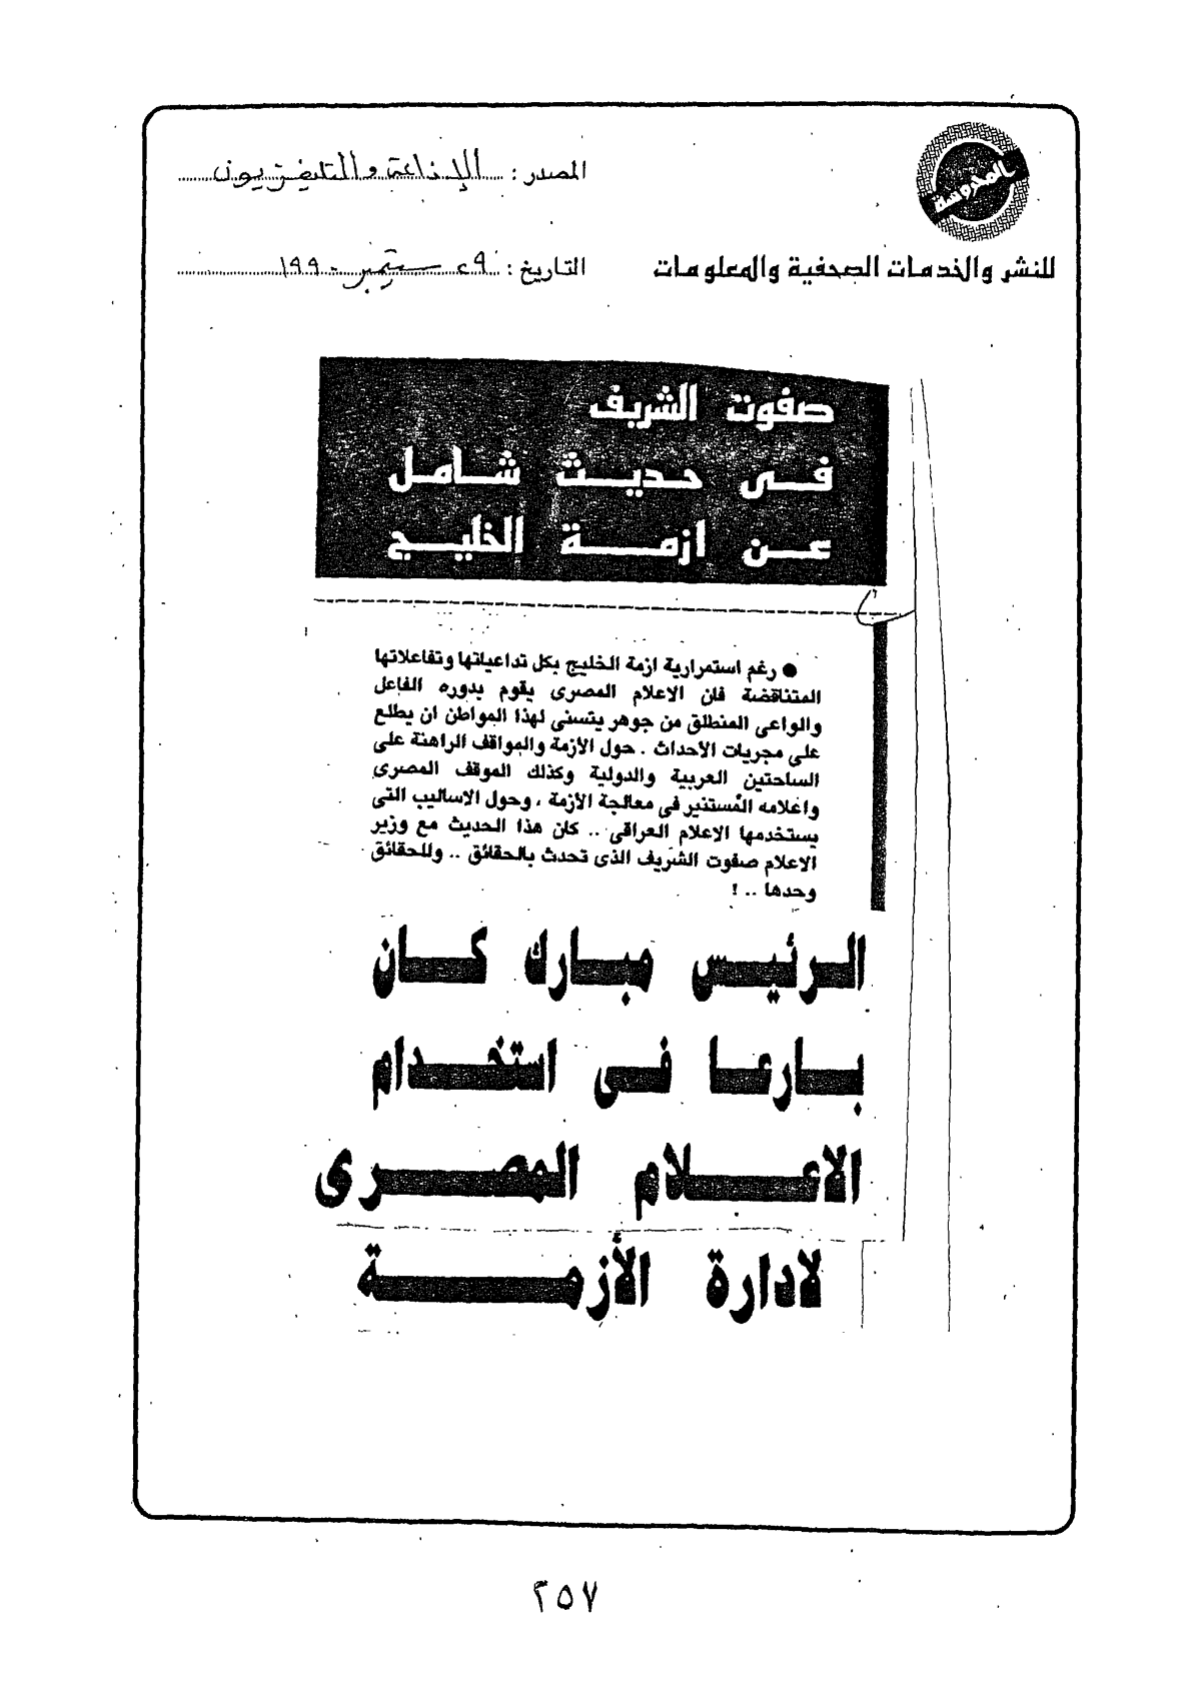 المحروسة
المصدر : الإذاعة والتليفزيون
للنشر والخدمات الصحفية والمعلومات
التاريخ : ٢٩ سبتمبر ١٩٩٠
صفوت الشريف
فى حديث شامل
عن ازمة الخليج
● رغم استمرارية ازمة الخليج بكل تداعياتها وتفاعلاتها
المتناقضة فان الاعلام المصرى يقوم بدوره الفاعل
والواعى المنطلق من جوهر يتسنى لهذا المواطن ان يطلع
على مجريات الأحداث . حول الأزمة والمواقف الراهنة على
الساحتين العربية والدولية وكذلك الموقف المصرى
واعلامه المستنير فى معالجة الأزمة ، وحول الاساليب التى
يستخدمها الإعلام العراقى .. كان هذا الحديث مع وزير
الاعلام صفوت الشريف الذى تحدث بالحقائق .. وللحقائق
وحدها .. !
الرئيس مبارك كان
بارعا فى استخدام
الاعلام المصرى
لادارة الأزمة
٢٥٧